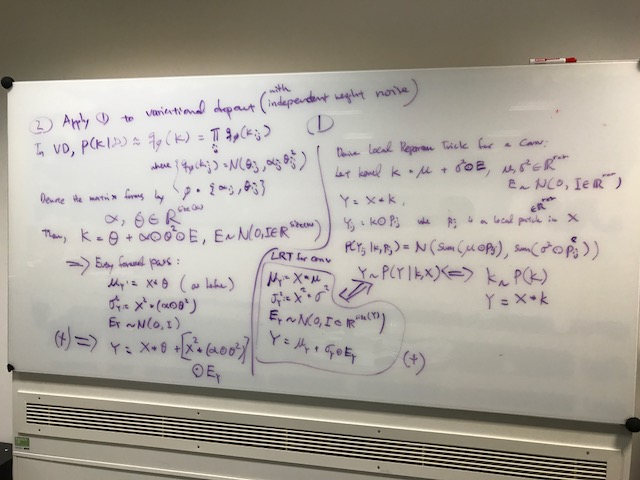 ② Apply ① to variational dropout (with independent weight noise)
In VD, P(K|D) ≈ qφ(K) = ∏ij qφ(kij)
where { qφ(kij) = N(θij, αijθ²ij)
φ = {αij, θij}
Denote the matrix forms by
α, θ ∈ R
Then, K = θ + α⊙θ²⊙E, E~N(0, I∈R
=> Every forward pass:
μY = X*θ (as before)
σ²Y = X²*(α⊙θ²)
EY ~ N(0, I)
(*) => Y = X*θ + [X²*(α⊙θ²)]
⊙EY
①
Local Reparam Trick for a Conv:
Let kernel k = μ + σ²⊙E, μ,σ² ∈ R
E ~ N(0, I∈R
Y = X*k,
Yj = k⊙Pj Pj is a local patch in X
P(Yj|k,Pj) = N(sum(μ⊙Pj), sum(σ²⊙Pj²))
Y ~ P(Y|k,X) <=> k ~ P(k)
Y = X*k
LRT for conv
μY = X*μ
σ²Y = X²*σ²
EY ~ N(0, I∈R
Y = μY + σY⊙EY
(*)